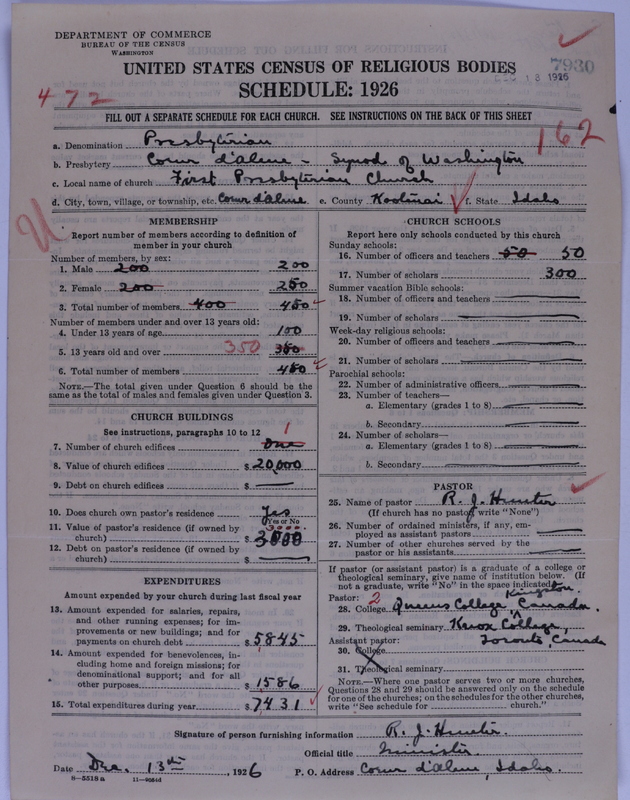 DEPARTMENT OF COMMERCE
BUREAU OF THE CENSUS
WASHINGTON
UNITED STATES CENSUS OF RELIGIOUS BODIES
7930
DEC 18 1926
SCHEDULE: 1926
472
FILL OUT A SEPARATE SCHEDULE FOR EACH CHURCH. SEE INSTRUCTIONS ON THE BACK OF THIS SHEET
162
a. Denomination Presbyterian
b. Presbytery Coeur d'alene - Synod of Washington
c. Local name of church First Presbyterian Church
d. City, town, village, or township, etc. Coeur d'alene e. County Kootnai f. State Idaho
U
MEMBERSHIP
Report number of members according to definition of
member in your church
Number of members, by sex:
1. Male 200 200
2. Female 200 250
3. Total number of members 400 450
Number of members under and over 13 years old:
4. Under 13 years of age 100
5. 13 years old and over 350 350
6. Total number of members 450
NOTE.—The total given under Question 6 should be the
same as the total of males and females given under Question 3.
CHURCH BUILDINGS
See instructions, paragraphs 10 to 12
7. Number of church edifices One 1
8. Value of church edifices $ 20,000
9. Debt on church edifices $
10. Does church own pastor's residence? Yes
Yes or No
11. Value of pastor's residence (if owned by
church) $ 3000 3000
12. Debt on pastor's residence (if owned by
church) $
EXPENDITURES
Amount expended by your church during last fiscal year
13. Amount expended for salaries, repairs,
and other running expenses; for im-
provements or new buildings; and for
payments on church debt $ 5845
14. Amount expended for benevolences, in-
cluding home and foreign missions; for
denominational support; and for all
other purposes $ 1586
15. Total expenditures during year $ 7431
CHURCH SCHOOLS
Report here only schools conducted by this church
Sunday schools:
16. Number of officers and teachers 50 50
17. Number of scholars 300
Summer vacation Bible schools:
18. Number of officers and teachers
19. Number of scholars
Week-day religious schools:
20. Number of officers and teachers
21. Number of scholars
Parochial schools:
22. Number of administrative officers
23. Number of teachers—
a. Elementary (grades 1 to 8)
b. Secondary
24. Number of scholars—
a. Elementary (grades 1 to 8)
b. Secondary
PASTOR
25. Name of pastor R. J. Hunter
(If church has no pastor write "None")
26. Number of ordained ministers, if any, em-
ployed as assistant pastors
27. Number of other churches served by the
pastor or his assistants
If pastor (or assistant pastor) is a graduate of a college or
theological seminary, give name of institution below. (If
not a graduate, write "No" in the space indicated.)
Pastor: 2 Kingston
28. College Queens College, Canada.
29. Theological seminary Knox College,
Assistant pastor: Toronto, Canada
30. College
31. Theological seminary
NOTE.—Where one pastor serves two or more churches,
Questions 28 and 29 should be answered only on the schedule
for one of the churches; on the schedules for the other churches,
write "See schedule for church."
Signature of person furnishing information R. J. Hunter.
Official title Minister.
Date Dec. 13th, 1926 P. O. Address Coeur d'alene, Idaho.
8—5518a 11—9064d